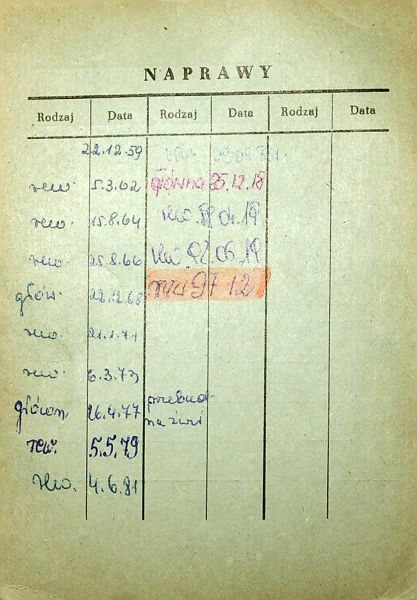 NAPRAWY
Rodzaj Data Rodzaj Data Rodzaj Data
22.12.59
rew. 5.3.62 główna 25.12.18
rew. 15.8.64 rew. 04.19
rew. 25.8.66 rew. 06.19
głów. 22.2.68
rew. 21.1.71
rew. 3.73
główn. 26.4.77 przebud-
na żużl
rew. 5.5.79
rew. 4.6.81